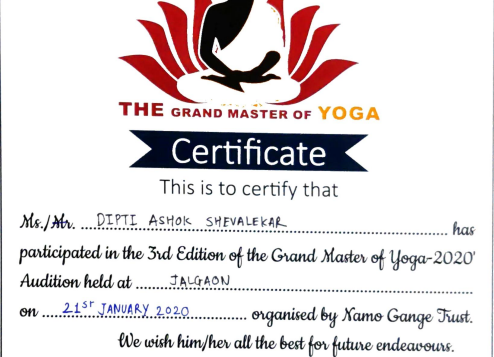 THE GRAND MASTER OF YOGA
Certificate
This is to certify that
Ms./Mr. DIPTI ASHOK SHEVALEKAR has
participated in the 3rd Edition of the Grand Master of Yoga-2020'
Audition held at JALGAON
on 21ST JANUARY 2020 organised by Namo Gange Trust.
We wish him/her all the best for future endeavours.